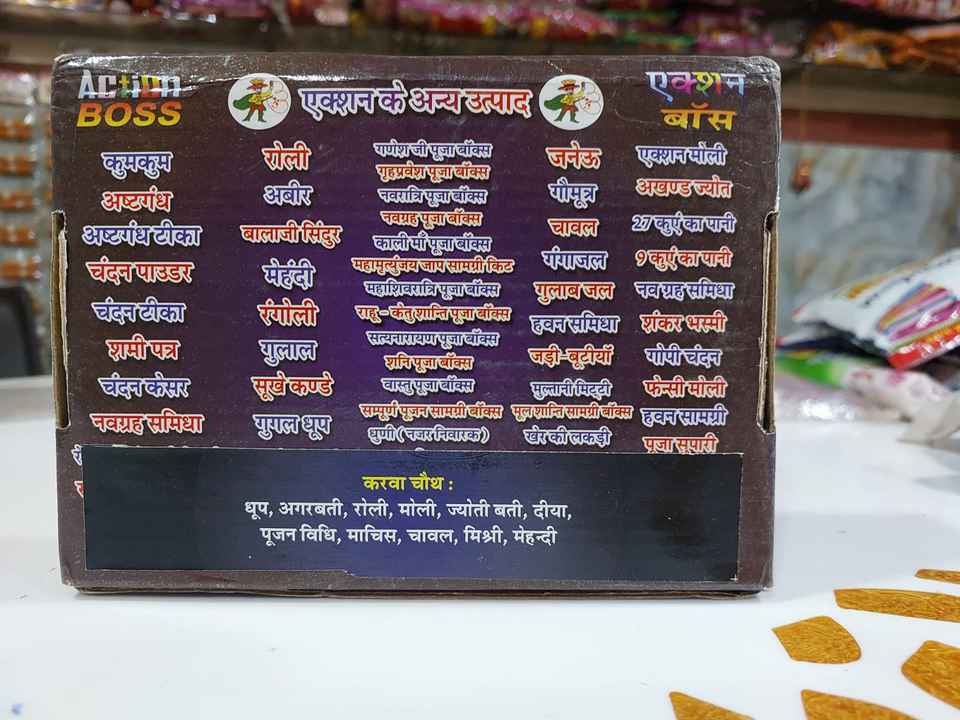 Action
BOSS
एक्शन के अन्य उत्पाद
एक्शन
बॉस
कुमकुम
अष्टगंध
अष्टगंध टीका
चंदन पाउडर
चंदन टीका
शमी पत्र
चंदन केसर
नवग्रह समिधा
रोली
अबीर
बालाजी सिंदुर
मेहंदी
रंगोली
गुलाल
सूखे कण्डे
गुगल धूप
गणेश जी पूजा बॉक्स
गृहप्रवेश पूजा बॉक्स
नवरात्रि पूजा बॉक्स
नवग्रह पूजा बॉक्स
काली माँ पूजा बॉक्स
महामृत्युंजय जाप सामग्री किट
महाशिवरात्रि पूजा बॉक्स
राहू - केतु शान्ति पूजा बॉक्स
सत्यनारायण पूजा बॉक्स
शनि पूजा बॉक्स
वास्तु पूजा बॉक्स
सम्पूर्ण पूजन सामग्री बॉक्स
धुणी ( नजर निवारक )
जनेऊ
गौमूत्र
चावल
गंगाजल
गुलाब जल
हवन समिधा
जड़ी-बूटीयाँ
मुल्तानी मिट्टी
मूल शान्ति सामग्री बॉक्स
खेर की लकड़ी
एक्शन मोली
अखण्ड ज्योत
27 कुएं का पानी
9 कुएं का पानी
नव ग्रह समिधा
शंकर भस्मी
गोपी चंदन
फेन्सी मोली
हवन सामग्री
पूजा सुपारी
करवा चौथ :
धूप, अगरबती, रोली, मोली, ज्योती बती, दीया,
पूजन विधि, माचिस, चावल, मिश्री, मेहन्दी